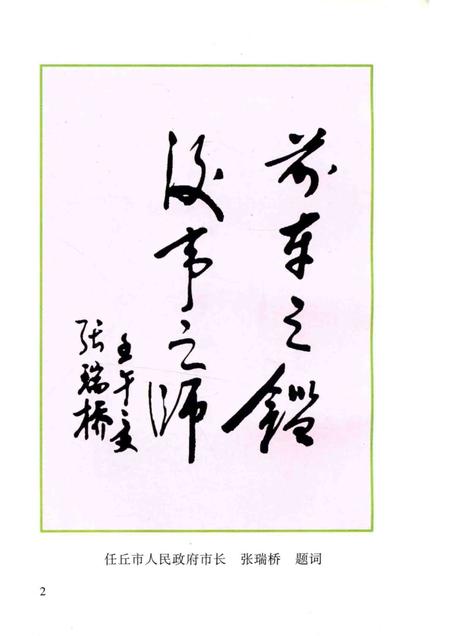 前车之鑑
后事之师
壬午之夏
张瑞桥
任丘市人民政府市长 张瑞桥 题词
2